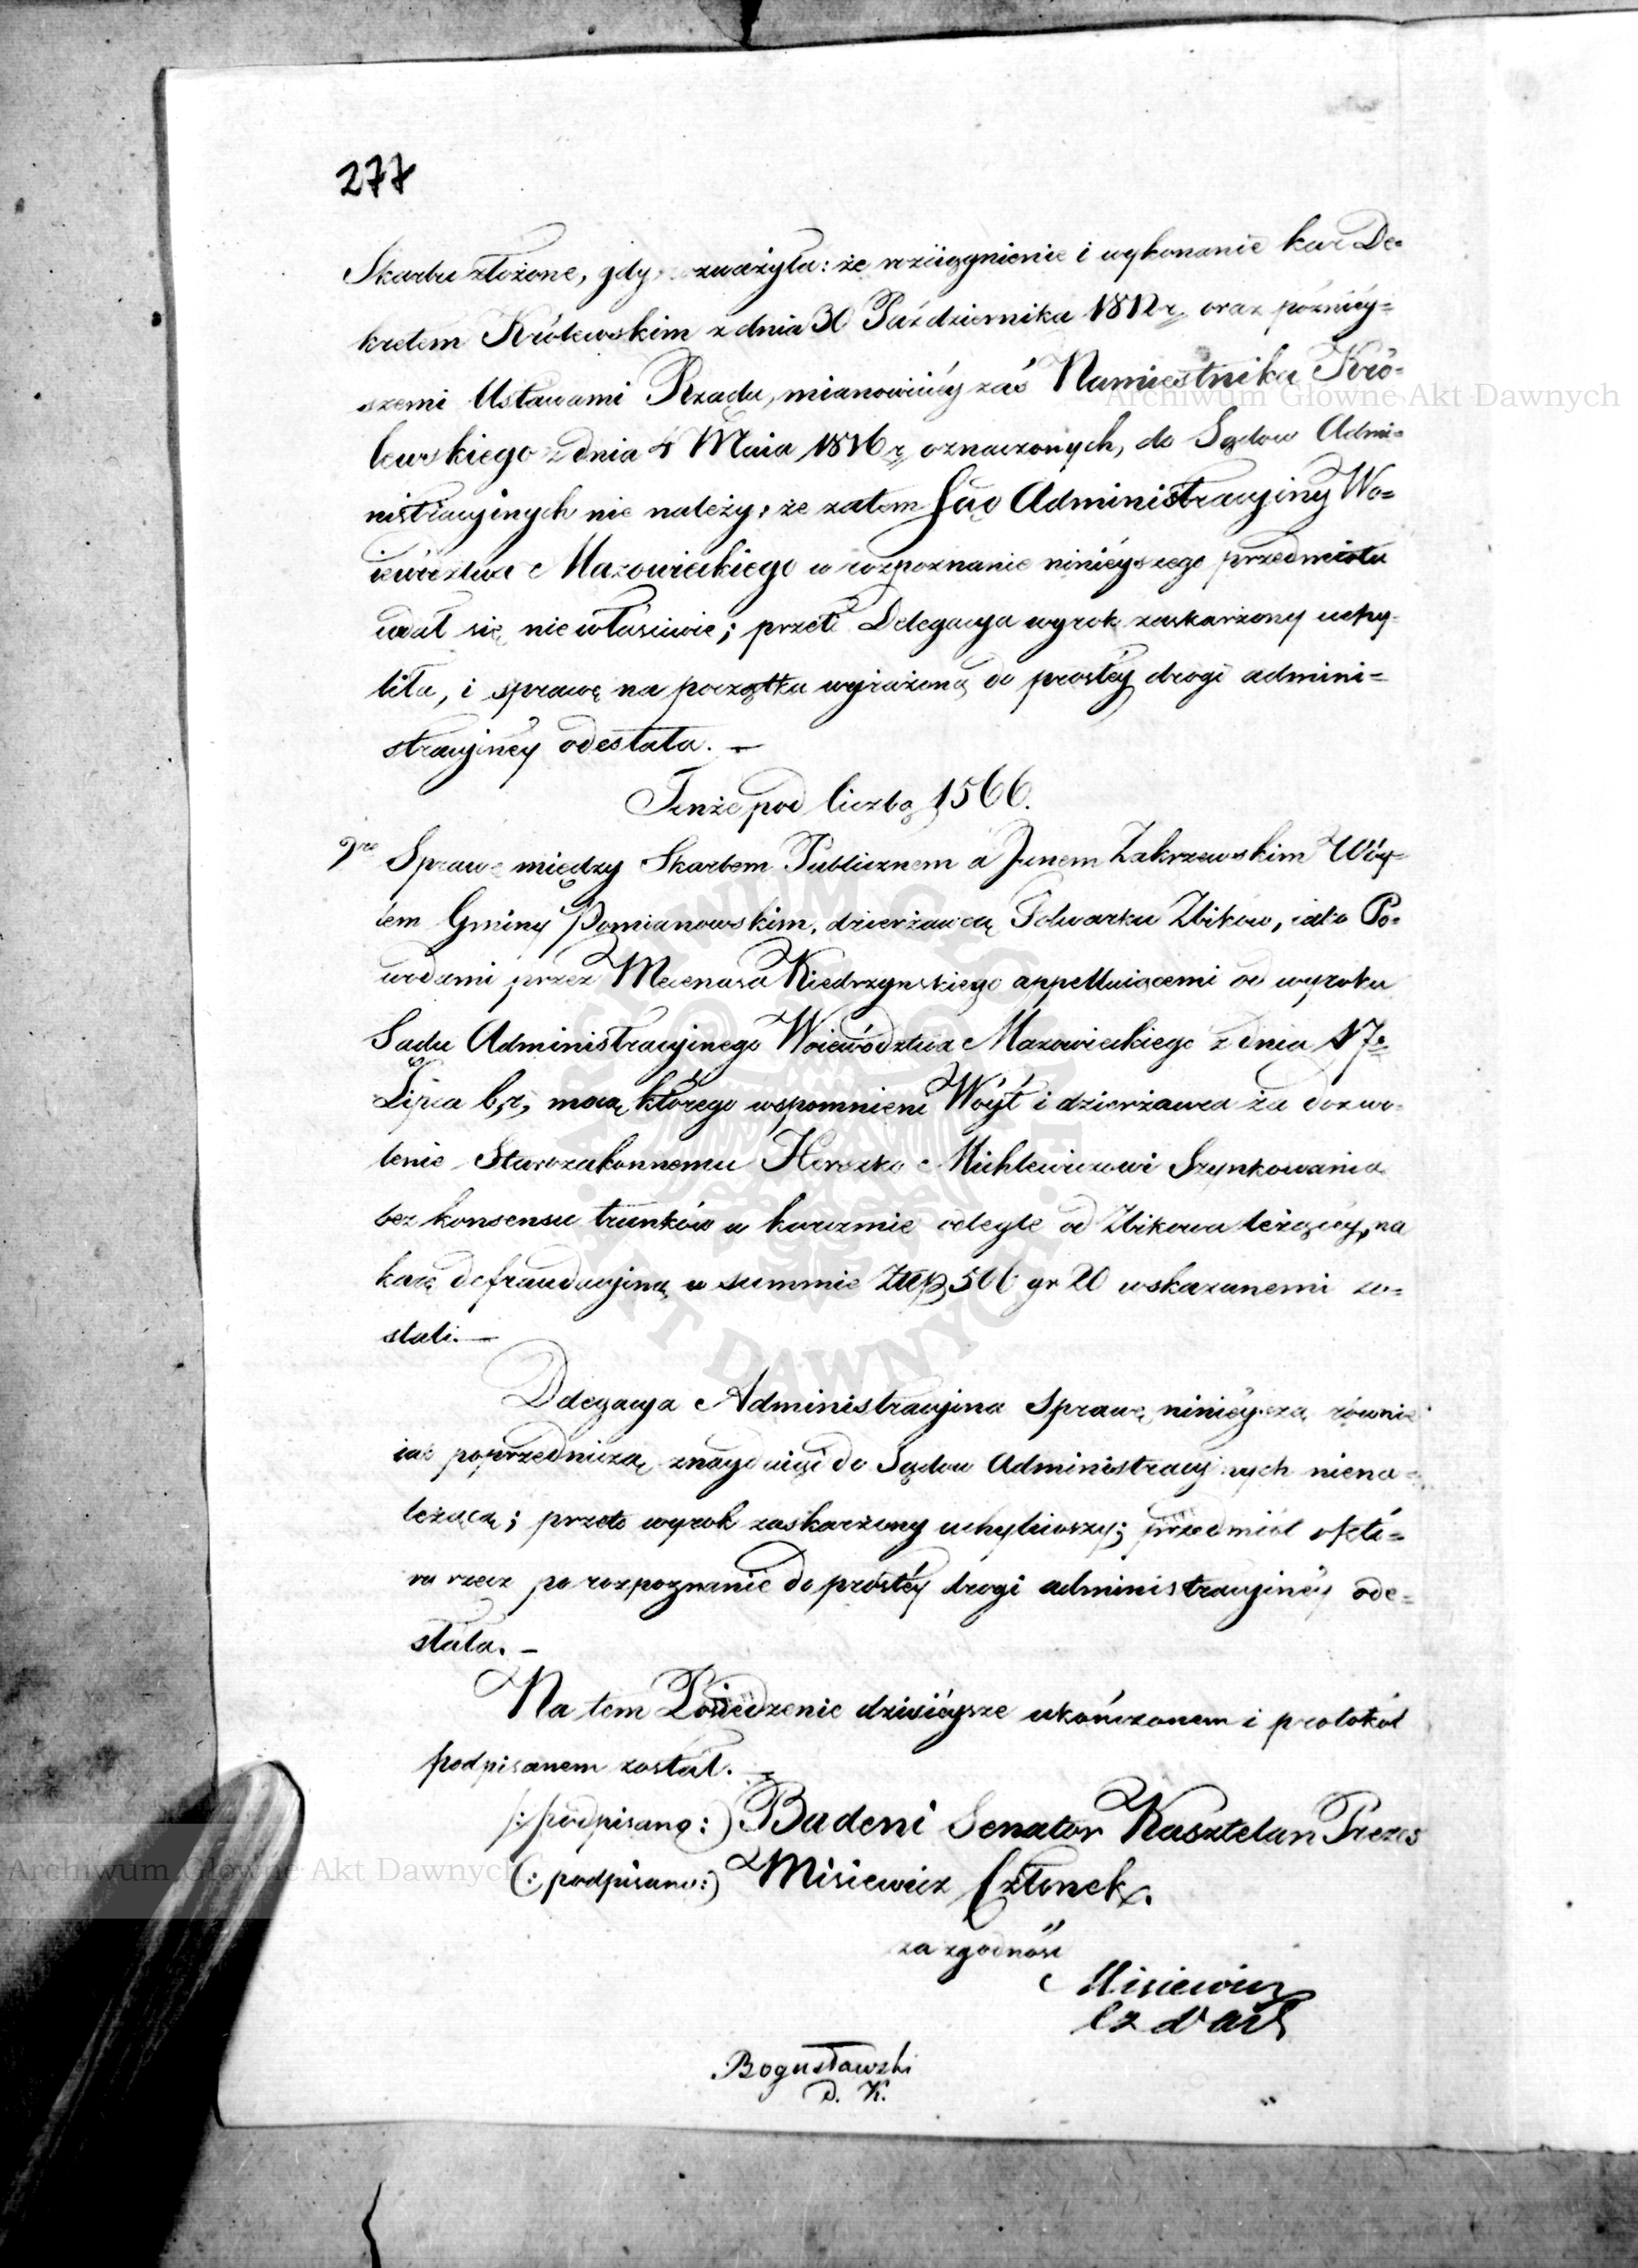 277
Skarbu złożone, gdy zważyła: że rościągnienie i wykonanie kar De=
kretem Królewskim z dnia 30 Października 1812 r. oraz późniéy=
szemi Ustawami Rządu, mianowiciéy zaś Namiestnika Kró=
lewskiego z dnia 4 Maia 1816 r. oznaczonych, do Sądów Admi=
nistracyinych nie należy; że zatem Sąd Administracyiny Wo=
iewództwa Mazowieckiego w rozpoznanie niniéyszego przedmiotu
wdał się niewłaściwie; przeto Delegacya wyrok zaskarżony uchy=
liła, i sprawę na początku wyrażoną do prostéy drogi admini=
stracyinéy odesłała. —
Tenże pod liczbą 1566.
Sprawę między Skarbem Publicznem a Janem Zakrzewskim Wóy=
tem Gminy Pomianowskim, dzierżawcą Folwarku Zbików, iako Po=
wodami przez Mecenasa Kiedrzyńskiego appelluiącemi od wyroku
Sądu Administracyinego Woiewództwa Mazowieckiego z dnia 17.
Lipca b. r., mocą którego wspomnieni Wóyt i dzierżawca za dozwo=
lenie Starozakonnemu Herszko Michlewiczowi Szynkowania
bez konsensu trunków w karczmie odległe od Zbikowa leżącéy, na
karę defraudacyiną w summie Złp. 506 gr 20 wskazanemi zo=
stali. —
Delegacya Administracyina Sprawę niniéyszą równie
iak poprzedniczą znayduiąc do Sądów Administracyinych niena=
leżącą; przeto wyrok zaskarżony uchyliwszy; przedmiot
rzecz po rozpoznanie do prostéy drogi administracyinéy ode=
słała. —
Na tem Posiedzenie dzisiéysze ukończonem i protokół
podpisanem został. —
(: podpisano :) Badeni Senator Kasztelan Prezes
(: podpisano :) Misiewicz Członek.
za zgodność
Misiewicz
Bogusławski
D. K.
Archiwum Główne Akt Dawnych
Archiwum Główne Akt Dawnych
ARCHIWUM GŁÓWNE AKT DAWNYCH